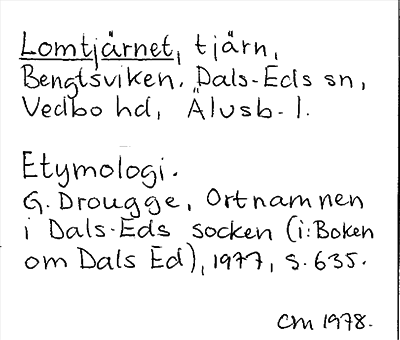 Lomtjärnet, tjärn,
Bengtsviken. Dals-Eds sn,
Vedbo hd, Älvsb. l.
Etymologi.
G. Drougge, Ortnamnen
i Dals-Eds socken (i: Boken
om Dals Ed), 1977, s. 635.
CM 1978.